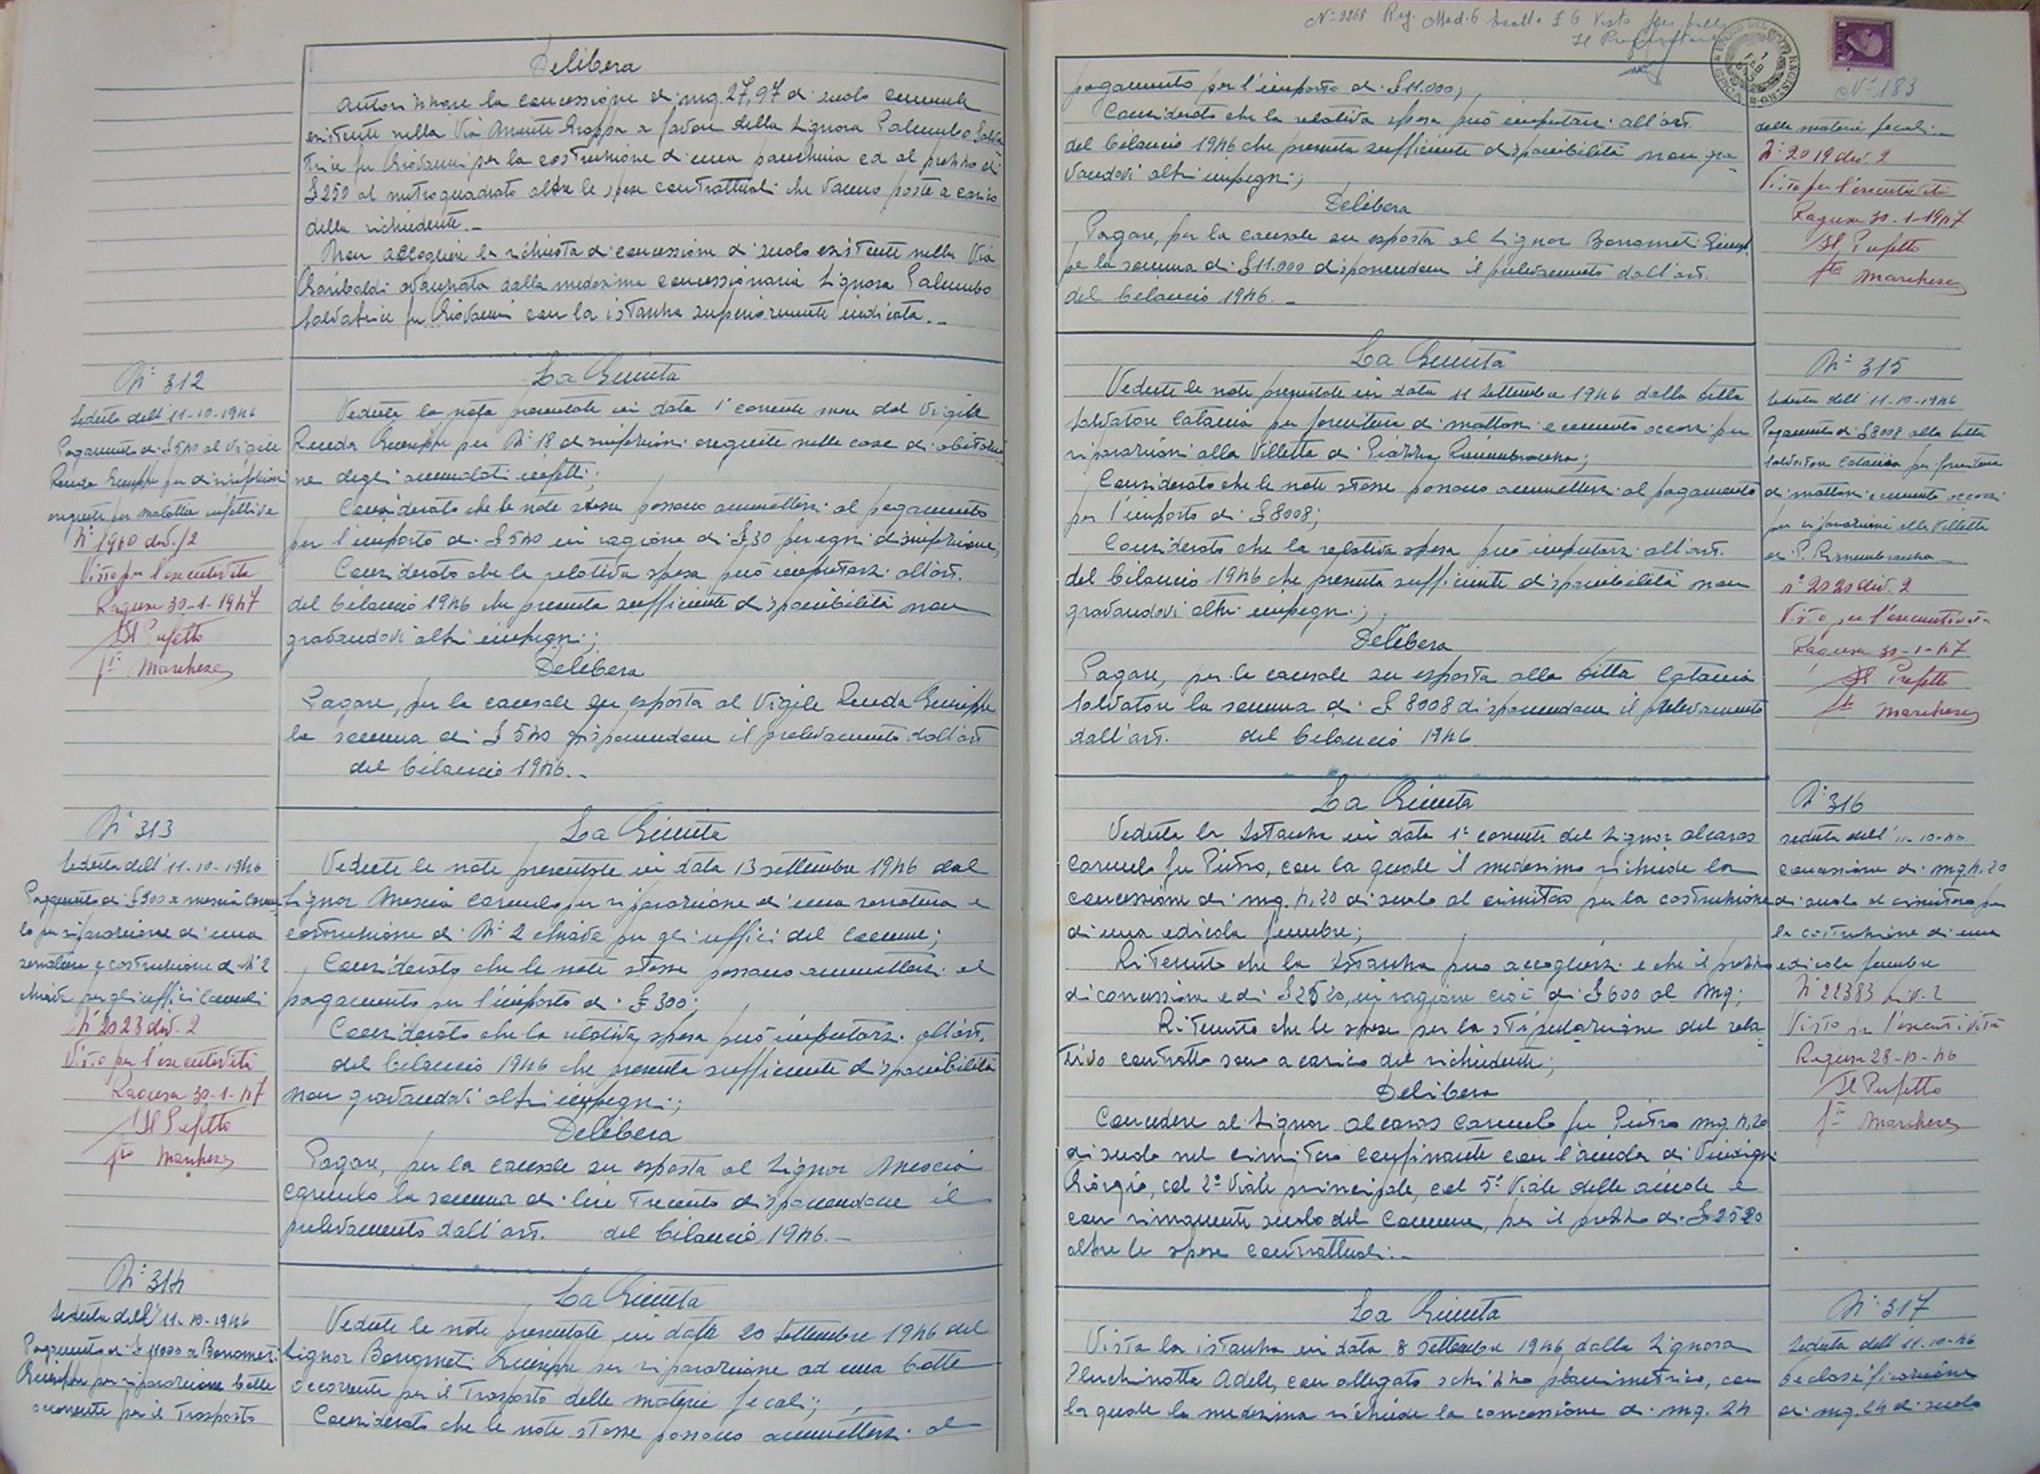 Delibera
Autorizzare la concessione di mq. 27,97 di suolo comunale
esistente nella Via Monte Grappa a favore della Signora Palumbo Salva
trice fu Giovanni per la costruzione di una panchina ed al prezzo di
£ 250 al metroquadrato oltre le spese contrattuali che vanno poste a carico
della richiedente. _
Non accogliere la richiesta di concessione di suolo esistente nella Via
Garibaldi avanzata dalla medesima concessionaria Signora Palumbo
Salvatrice fu Giovanni con la istanza superiormente indicata. _
N° 312
Seduta dell' 11-10-1946
Pagamento di £ 540 al Vigile
Renda Giuseppe per disinfezioni
eseguite per malattie infettive
N° 1940 div. /2
Visto per l'esecutività
Ragusa 30-1-1947
Il Prefetto
fto Marchese
La Giunta
Vedute le note presentate in data 1° corrente mese dal Vigile
Renda Giuseppe per N° 18 disinfezioni eseguite nelle case di abitazio
ne degli ammalati infetti;
Considerato che le note stesse possono ammettersi al pagamento
per l'importo di £ 540 in ragione di £ 30 per ogni disinfezione;
Considerato che la relativa spesa può imputarsi all'art.
del bilancio 1946 che presenta sufficiente disponibilità non
gravandovi altri impegni;
Delibera
Pagare, per la causale su esposta al Vigile Renda Giuseppe
la somma di £ 540 disponendone il prelevamento dall'art
del bilancio 1946. _
N° 313
Seduta dell' 11-10-1946
Pagamento di £ 300 a Mescia Carme
lo per riparazione di una
serratura e costruzione di N° 2
chiavi per gli uffici Comunali
N° 2023 div. 2
Visto per l'esecutività
Ragusa 30-1-47
Il Prefetto
fto Marchese
La Giunta
Vedute le note presentate in data 13 settembre 1946 dal
Signor Mescia Carmelo per riparazione di una serratura e
costruzione di N° 2 chiavi per gli uffici del Comune;
Considerato che le note stesse possono ammettersi al
pagamento per l'importo di £ 300;
Considerato che la relativa spesa può imputarsi all'art.
del bilancio 1946 che presenta sufficiente disponibilità
non gravandovi altri impegni;
Delibera
Pagare, per la causale su esposta al Signor Mescia
Carmelo la somma di lire Trecento disponendone il
prelevamento dall'art. del bilancio 1946. _
N° 314
Seduta dell' 11-10-1946
Pagamento di £ 11000 a Bonometi
Giuseppe per riparazione botte
occorrente per il trasporto
La Giunta
Vedute le note presentate in data 20 settembre 1946 del
Signor Bonometi Giuseppe per riparazione ad una botte
occorrente per il trasporto delle materie fecali;
Considerato che le note stesse possono ammettersi al
N° 2268 Reg. Mod. 6 £ 6 Visto per
Il
N° 183
pagamento per l'importo di £ 11.000;
Considerato che la relativa spesa può imputarsi all'art.
del bilancio 1946 che presenta sufficiente disponibilità non gra
vandovi altri impegni;
Delibera
Pagare, per la causale su esposta al Signor Bonometi Giusep
pe la somma di £ 11.000 disponendone il prelevamento dall'art.
del bilancio 1946. _
delle materie fecali. _
N° 2019 div. 2
Visto per l'esecutività
Ragusa 30-1-1947
Il Prefetto
fto Marchese
La Giunta
Vedute le note presentate in data 11 Settembre 1946 dalla ditta
Salvatore Catania per fornitura di mattoni e cemento occorsi per
riparazioni alla Villetta di Piazza Rimembranza;
Considerato che le note stesse possono ammettersi al pagamento
per l'importo di £ 8008;
Considerato che la relativa spesa può imputarsi all'art.
del bilancio 1946 che presenta sufficiente disponibilità non
gravandovi altri impegni;
Delibera
Pagare, per la causale su esposta alla ditta Catania
Salvatore la somma di £ 8008 disponendone il prelevamento
dall'art. del bilancio 1946
N° 315
Seduta dell' 11-10-1946
Pagamento di £ 8008 alla ditta
Salvatore Catania per fornitura
di mattoni e cemento occorsi
per riparazioni alla Villetta
di P. Rimembranza _
n° 2020 div. 2
Visto per l'esecutività
Ragusa 30-1-47
Il Prefetto
fto Marchese
La Giunta
Veduta la Istanza in data 1° corrente del Signor Alcaras
Carmelo fu Pietro, con la quale il medesimo richiede la
concessione di mq. 4,20 di suolo al cimitero per la costruzione
di una edicola funebre;
Ritenuto che la Istanza può accogliersi e che il prezzo
di concessione e di £ 2520, in ragione cioè di £ 600 al mq;
Ritenuto che le spese per la stipulazione del rela
tivo contratto sono a carico del richiedente;
Delibera
Concedere al Signor Alcaras Carmelo fu Pietro mq. 4,20
di suolo nel cimitero confinante con l'aiuola di Vindigni
Giorgio, col 2° Viale principale, col 5° Viale delle aiuole e
con rimanente suolo del Comune, per il prezzo di £ 2520
oltre le spese contrattuali. _
N° 316
seduta dell' 11-10-46
concessione di mq. 4,20
di suolo al cimitero per
la costruzione di una
edicola funebre
N° 22383 div. 2
Visto per l'esecutività
Ragusa 28-10-46
Il Prefetto
fto Marchese
La Giunta
Vista la istanza in data 8 settembre 1946 dalla Signora
Pluchinotta Adele, con allegato schizzo planimetrico, con
la quale la medesima richiede la concessione di mq. 24
N° 317
Seduta dell' 11-10-46
Declassificazione
di mq. 24 di suolo